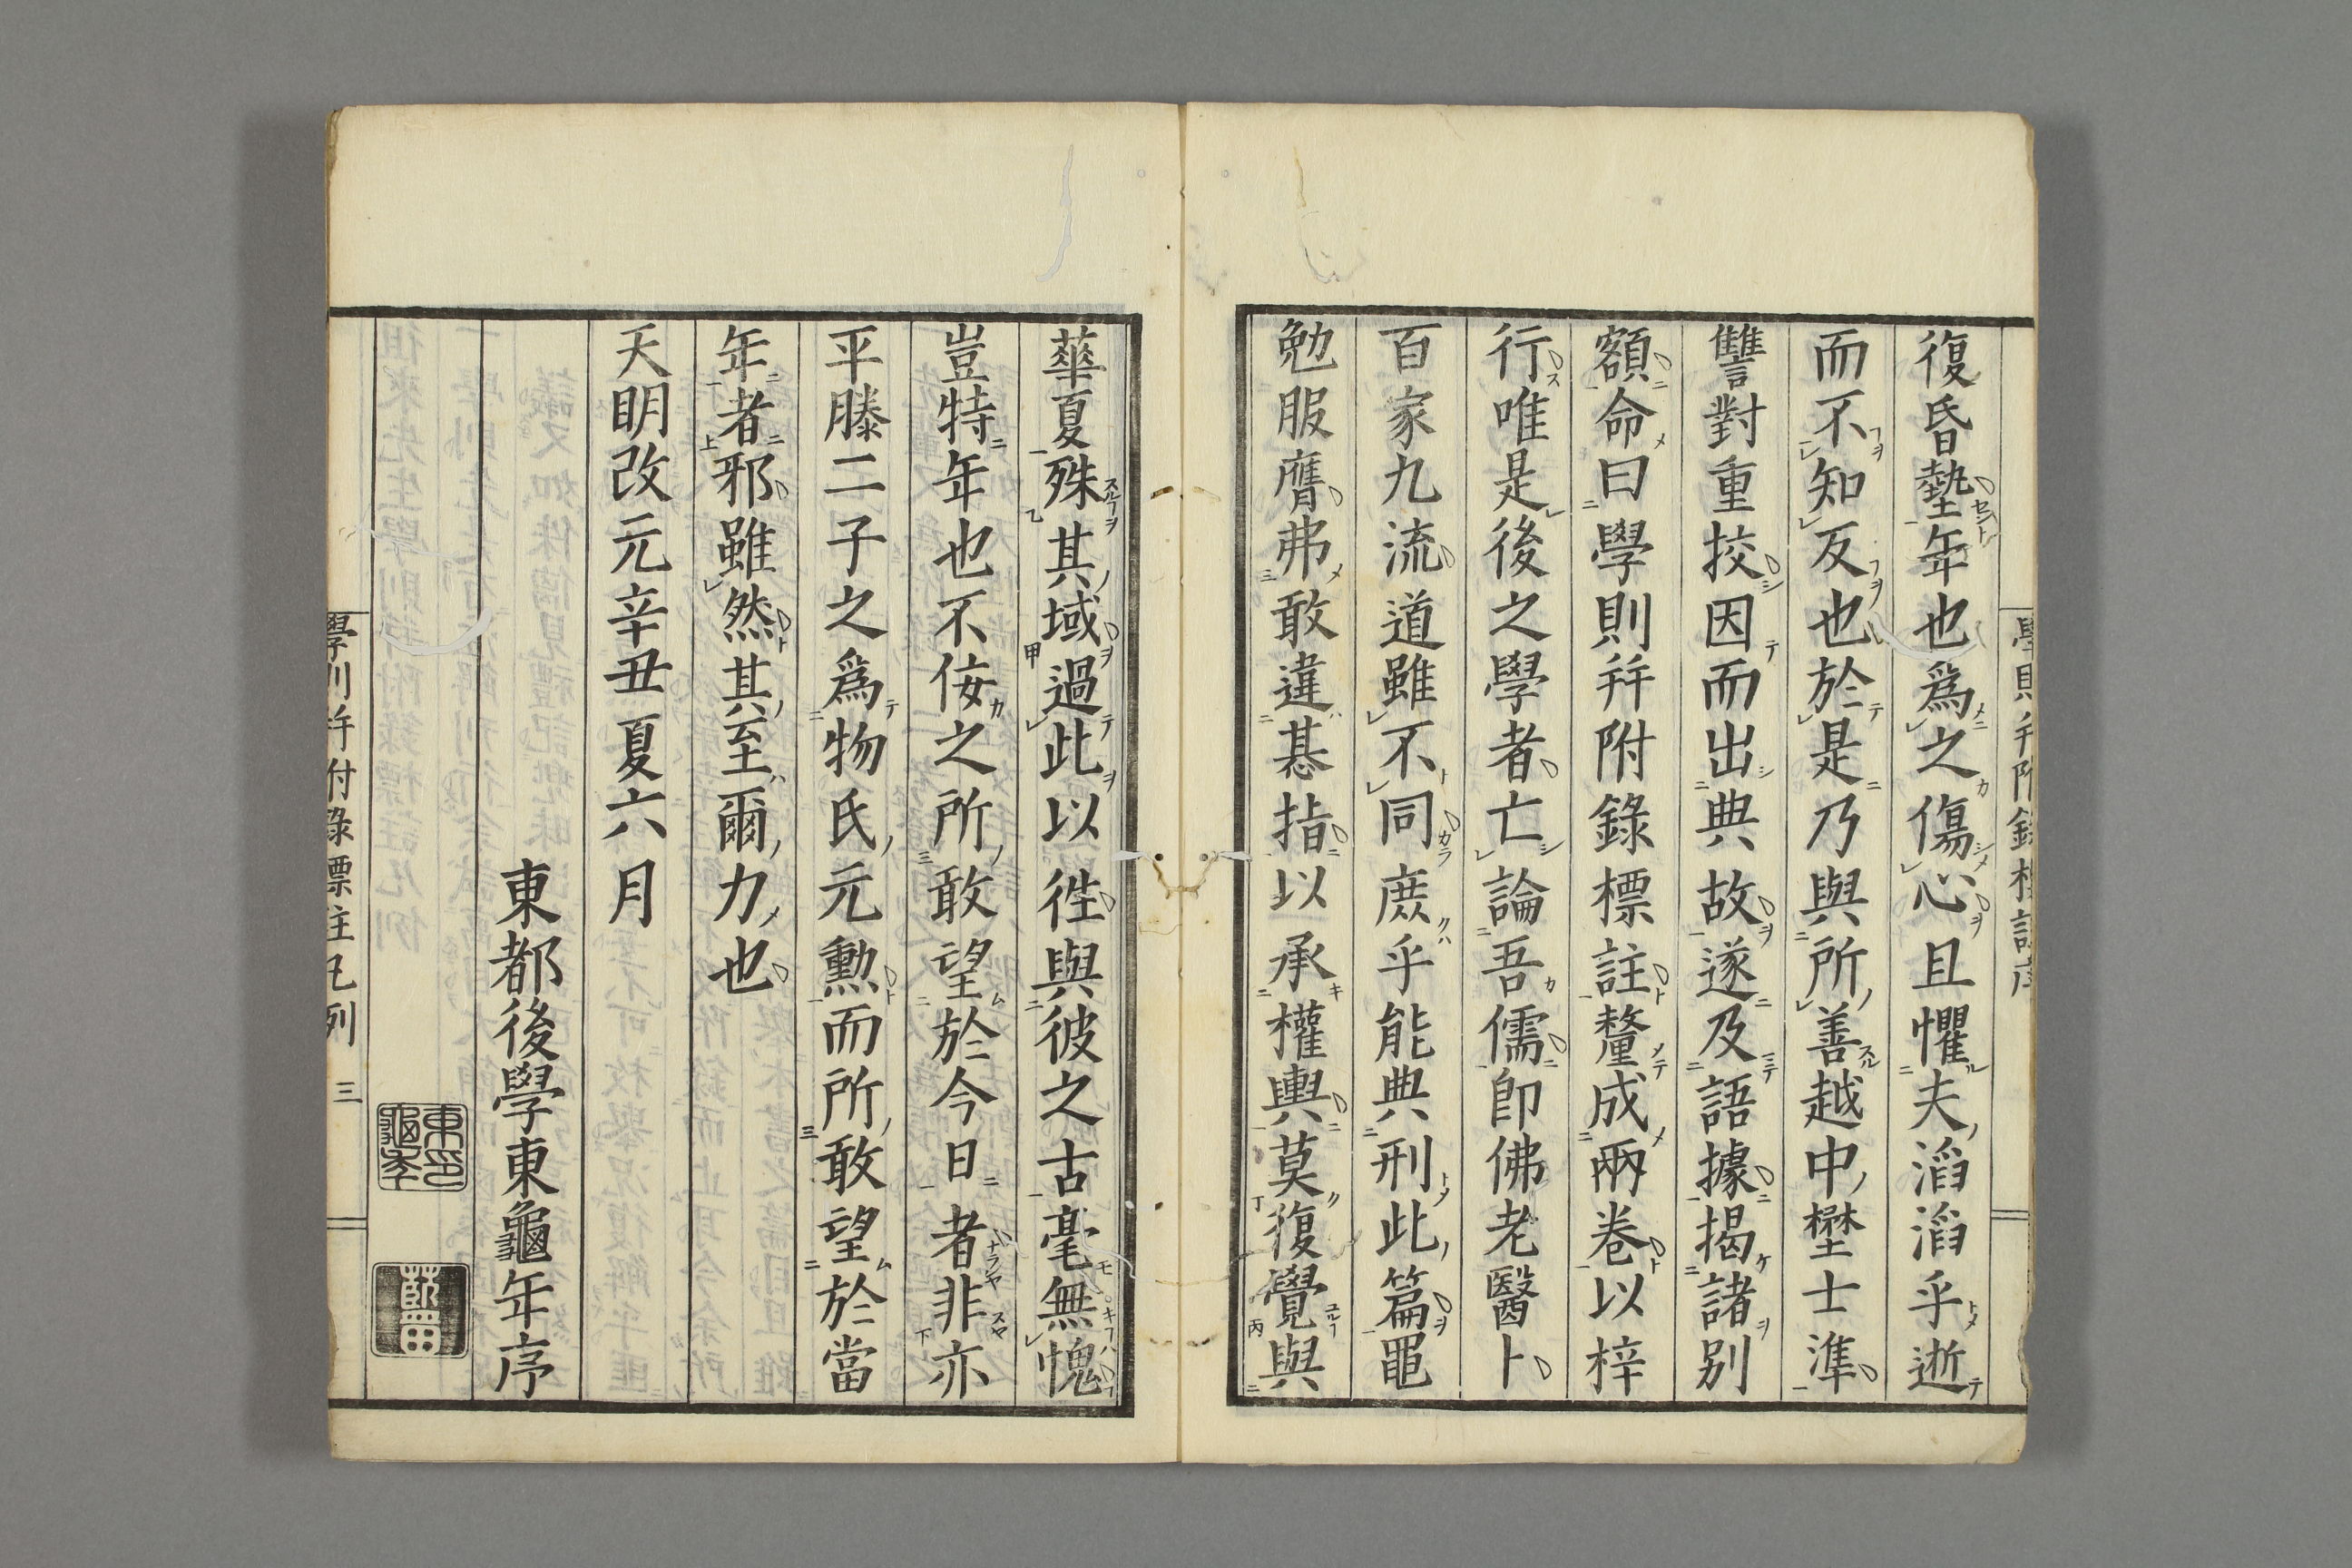 復昏墊年也爲之傷心且懼夫滔滔乎逝
而不知反也於是乃與所善越中壄士準
讐對重挍因而出典故遂及語據揭諸別
額命曰學則幷附錄標註釐成兩卷以梓
行唯是後之學者亡論吾儒卽佛老醫卜
百家九流道雖不同庶乎能典刑此篇黽
勉服膺弗敢違惎指以承權輿莫復覺與
華夏殊其域過此以徃與彼之古毫無愧
豈特年也不佞之所敢望於今日者非亦
平滕二子之爲物氏元勳而所敢望於當
年者邪雖然其至爾力也
天明改元辛丑夏六月
東都後學東龜年序
學則幷附錄標註凡例 三